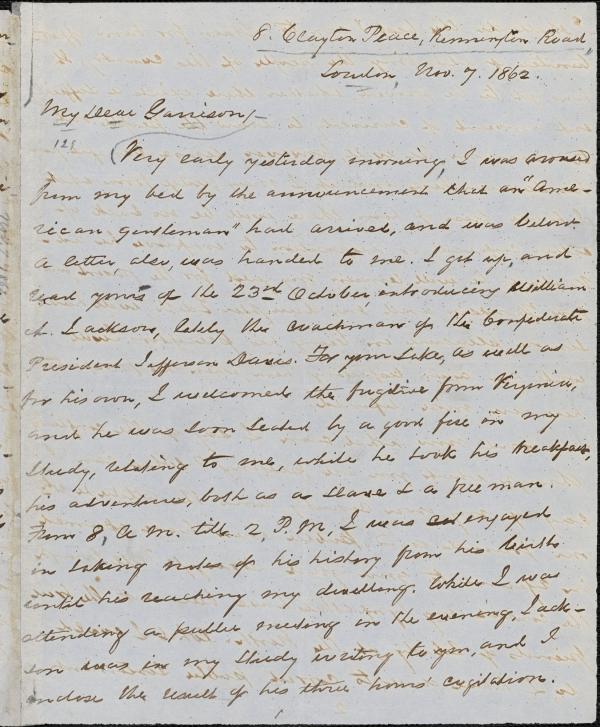 8. Clayton Place, Kennington Road
London, Nov. 7. 1862.
My Dear Garrison,
Very early yesterday morning, I was aroused
from my bed by the announcement that an "Ame-
rican gentleman" had arrived, and was below.
A letter, also, was handed to me. I got up, and
read yours of the 23rd October, introducing William
A. Jackson, lately the coachman of the Confederate
President Jefferson Davis. For your sake, as well as
for his own, I welcomed the fugitive from Virginia,
and he was soon seated by a good fire in my
study, relating to me, while he took his breakfast,
his adventures, both as a slave & a free man.
From 8, A.M. till 2, P.M, I was engaged
in taking notes of his history from his birth
until his reaching my dwelling. While I was
attending a public meeting in the evening, Jack-
son was in my study writing to you, and I
enclose the result of his three hours' cogitation.